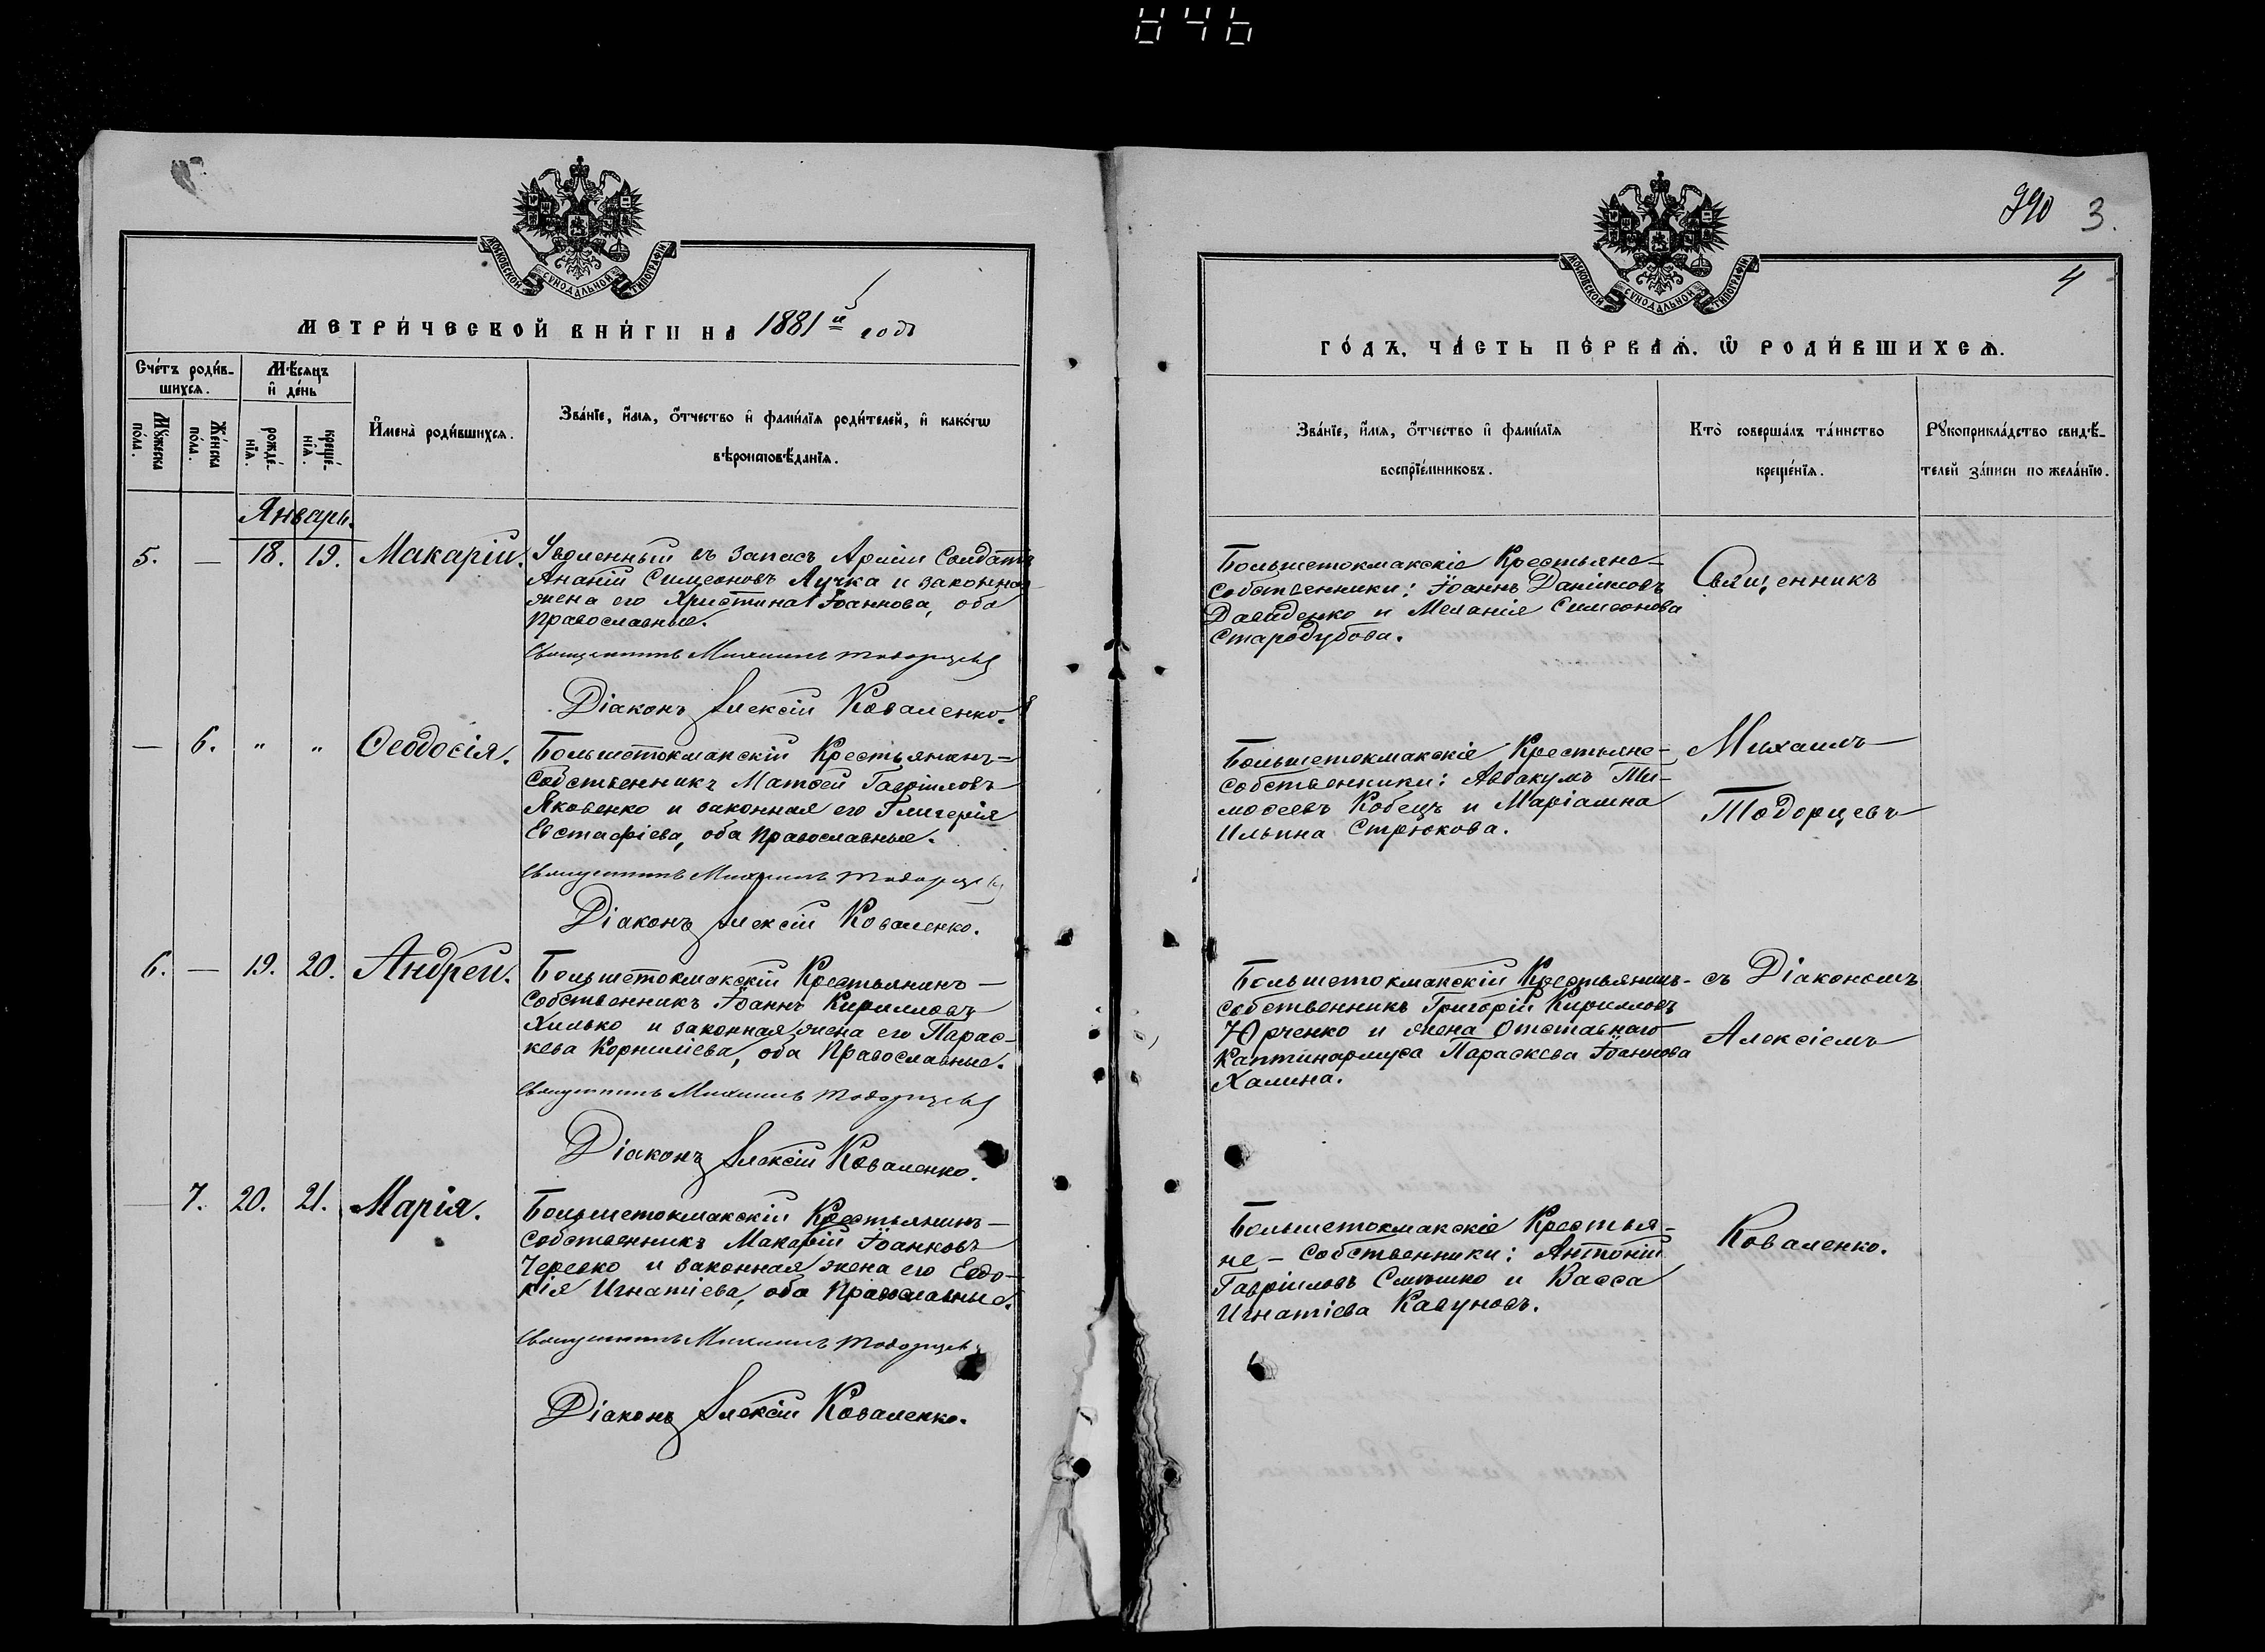 846
МОСКОВСКОЙ СѴНОДАЛЬНОЙ ТИПОГРАФІИ
МЕТРИ́ЧЕСКОЙ КНИ́ГИ НА 1881й годъ
Сче́тъ роди́в-
шихсѧ.
Мѣ́сѧцъ
и҆ де́нь
Мꙋ́жеска
по́ла.
Же́нска
по́ла.
рожде́-
нїѧ.
креще́-
нїѧ.
И҆мена̀ роди́вшихсѧ.
Зва́нїе, и҆́мѧ, ѻ҆́тчество и҆ фами́лїѧ роди́телей, и҆ како́гѡ
вѣроисповѣ́данїѧ.
Январь.
5. — 18. 19. Макарій.
Уволенный въ запасъ Арміи Солдатъ
Ананій Симеоновъ Лучка и законная
жена его Христина Іоаннова, оба
Православные.
Священникъ Михаилъ Тодорцевъ
Діаконъ Алексій Коваленко.
— 6. " " Ѳеодосія.
Большетокмакскій Крестьянинъ=
Собственникъ Матѳей Гавріиловъ
Яковенко и законная его Гликерія
Евстафіева, оба Православные.
Священникъ Михаилъ Тодорцевъ
Діаконъ Алексій Коваленко.
6. — 19. 20. Андрей.
Большетокмакскій Крестьянинъ —
Собственникъ Іоаннъ Кирилловъ
Хилько и законная жена его Парас-
кева Корниліева, оба Православные.
Священникъ Михаилъ Тодорцевъ
Діаконъ Алексій Коваленко.
— 7. 20. 21. Марія.
Большетокмакскій Крестьянинъ —
Собственникъ Макарій Іоанновъ
Черевко и законная жена его Евдо-
кія Игнатіева, оба Православные.
Священникъ Михаилъ Тодорцевъ
Діаконъ Алексій Коваленко.
990 3.
4
МОСКОВСКОЙ СѴНОДАЛЬНОЙ ТИПОГРАФІИ
ГО́ДЪ, ЧА́СТЬ ПЕ́РВАѦ, Ѡ҆ РОДИ́ВШИХСѦ.
Зва́нїе, и҆́мѧ, ѻ҆́тчество и҆ фами́лїѧ
воспрїе́мниковъ.
Кто̀ соверша́лъ та́инство
креще́нїѧ.
Рꙋкоприкла́дство свидѣ́-
телей за́писи по жела́нїю.
Большетокмакскіе Крестьяне-
Собственники: Іоаннъ Даніиловъ
Давиденко и Меланія Симеонова
Стародубова.
Священникъ
Большетокмакскіе Крестьяне-
Собственники: Аввакумъ Ти-
моѳеевъ Кобецъ и Маріамна
Ильина Стрюкова.
Михаилъ
Тодорцевъ
Большетокмакскій Крестьянинъ-
Собственникъ Григорій Кирилловъ
Юрченко и жена Отставнаго
Каптинармуса Параскева Іоаннова
Халина.
съ Діакономъ
Алексіемъ
Большетокмакскіе Крестья-
не - Собственники: Антоній
Гавріиловъ и Васса
Игнатіева Кавуновъ.
Коваленко.